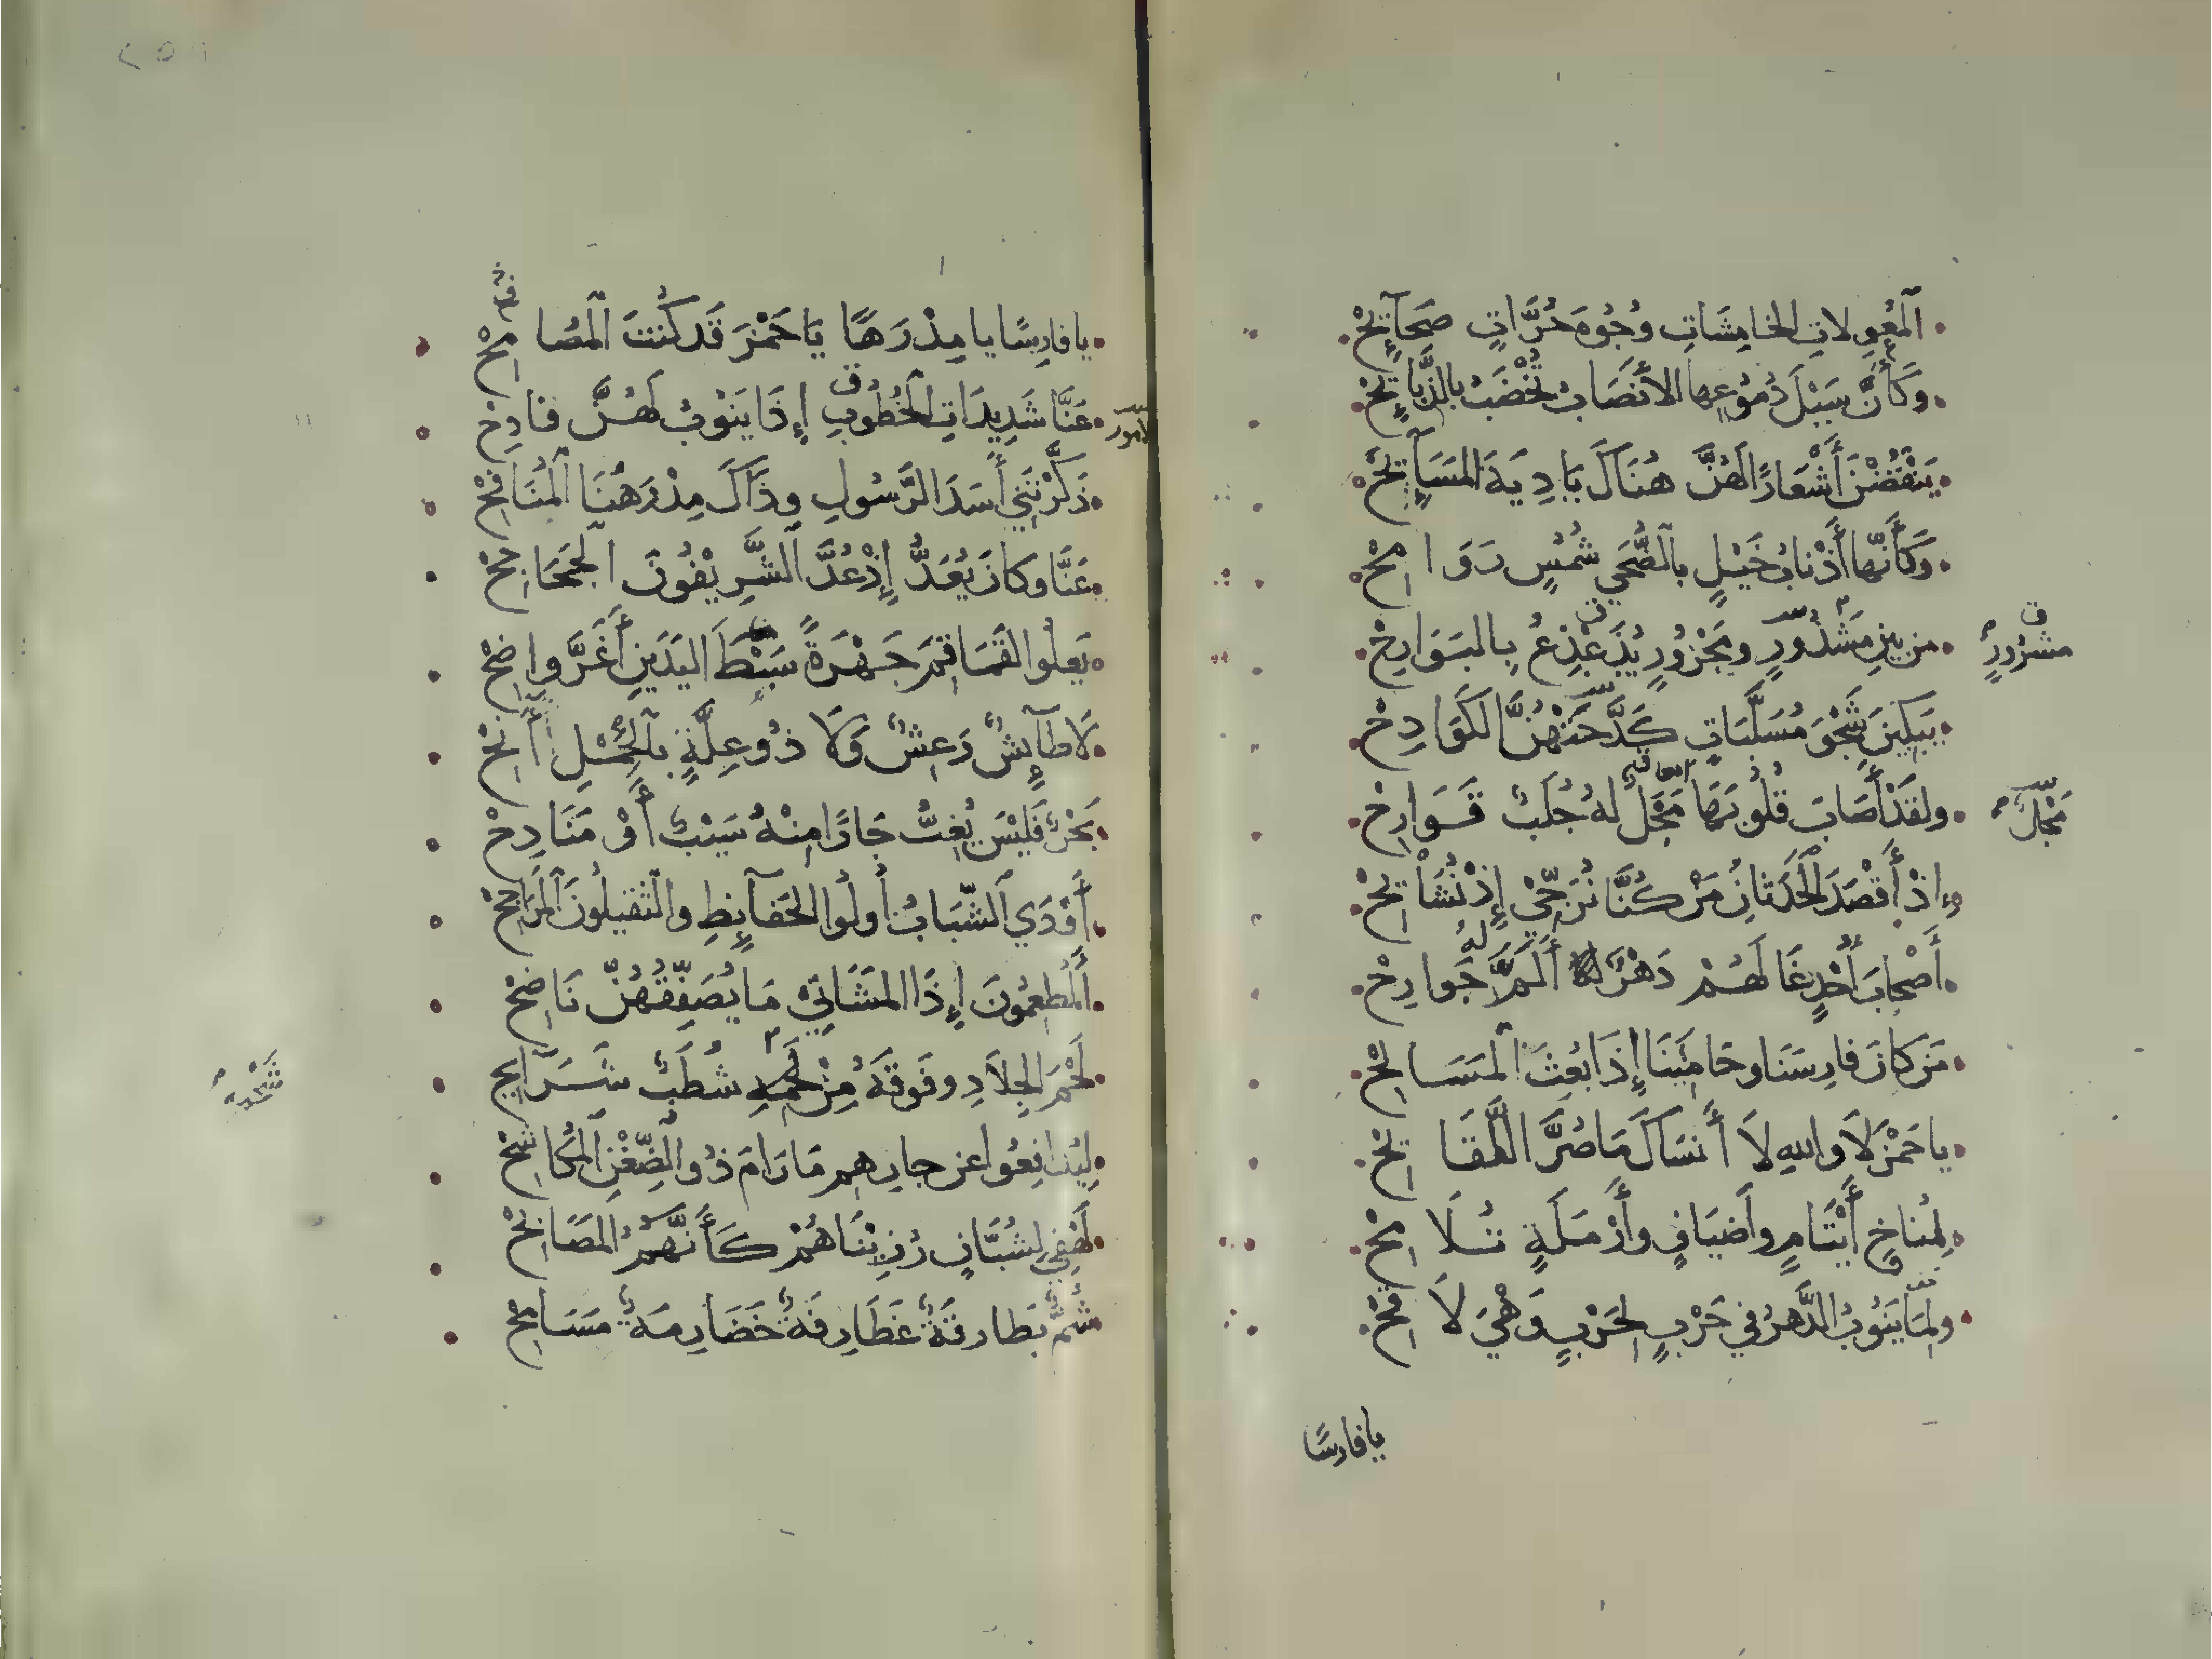 المُعْوِلاتِ الخامِشَاتِ وُجُوهَ حُرَّاتٍ صَحَائِحْ
وَكَأَنَّ سَيْلَ دُمُوعِها الأَنْصَابُ تُخْضَبُ بالذَّبَائِحْ
يَنْقُضْنَ أَشْعَارًا لَهُنَّ هُنَاكَ بَادِيَةَ المَسَائِحْ
وَكَأَنَّها أَذْنابُ خَيْلٍ بالضُّحَى شُمُسٍ رَوَامِحْ
من بينِ مَشْدُورٍ ومَجْزُورٍ يُذَعْذَعُ بِالبَوَارِحْ
مشزُورٍ
يَبْكِينَ شَجْوَ مُسَلَّبَاتٍ كَدَّحَتْهُنَّ الكَوَادِحْ
ولقَدْ أَصَابَ قُلُوبَهَا مَجْلٌ لهُ جُلَبٌ قَوَارِحْ
مَجْلٌ
إِذْ أَقْصَدَ الحَدَثانُ مَنْ كُنَّا نُرَجِّي إِذْ نُشَائِحْ
أَصْحَابَ أُحْدٍ غَالَهُمْ دَهْرٌ أَلَمَّ لَهُ جَوارِحْ
مَن كانَ فارِسَنا وحَامِيَنَا إِذَا بُعِثَ المَسَالِحْ
يا حَمْزَ لاَ واللهِ لاَ أَنْسَاكَ مَا صُرَّ اللَّقَائِحْ
لِمُناخِ أَيْتَامٍ وأَضيَافٍ وأَرْمَلَةٍ تُلَامِحْ
ولِمَا يَنُوبُ الدَّهرُ في حَرْبٍ لِحَرْبٍ وَهْيَ لاَقِحْ
يا فارسًا
يا فارِسًا يا مِدْرَهًا يَا حَمْزَ قَد كُنْتَ المُصَامِحْ
عَنَّا شَدِيدَاتِ الخُطُوبِ إِذَا يَنُوبُ لَهُنَّ فادِحْ
الأمور
ذَكَّرْتَنِي أَسَدَ الرَّسُولِ وذَاكَ مِدْرَهُنَا المُنَافِحْ
عَنَّا وكانَ يُعَدُّ إِذْ عُدَّ الشَّرِيفُونَ الجَحَاجِحْ
يَعلُو القَمَاقِمَ جَهْرَةً سَبْطَ اليَدَينِ أَغَرَّ واضِحْ
لَا طَائِشٌ رَعِشٌ وَلَا ذُو عِلَّةٍ بالحِمْلِ آنِحْ
بَحْرٌ فَلَيْسَ يُغِبُّ جَارًا مِنْهُ سَيْبٌ أَوْ مَنَادِحْ
أَوْدَى الشَّبَابُ أُولُوا الحَفَائِظِ والثَّقِيلُونَ المَرَاجِحْ
المُطْعِمُونَ إِذَا المَشَاتِي مَا يُصَفِّقُهُنَّ نَاضِحْ
لَحْمَ الجِلَادِ وفَوقَهُ مِنْ شَحْمِهِ شُطَبٌ شَرَائِحْ
شَحْمِهِ
لِيُدَافِعُوا عن جارِهِم مَا رَامَ ذُو الضِّغْنِ المُكَاشِحْ
لَهْفِي لِشُبَّانٍ رُزِيْنَاهُمْ كَأَنَّهُمُ المَصَابِحْ
شُمٌّ بَطَارِقَةٌ غَطَارِفَةٌ خَضَارِمَةٌ مَسَامِحْ